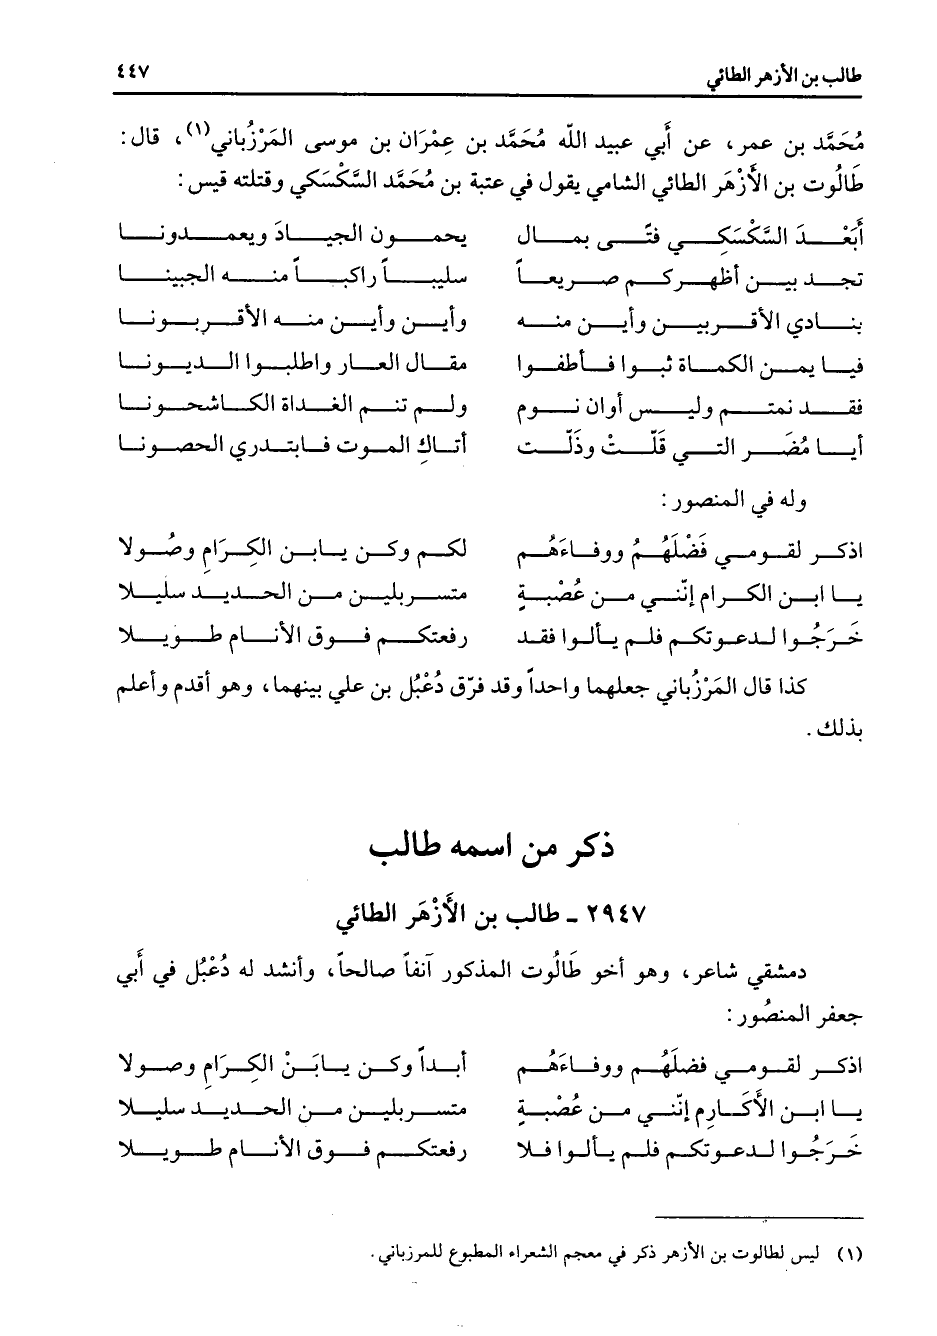 طالب بن الأزهر الطائي ٤٤٧
مُحَمَّد بن عمر، عن أَبي عبيد اللّه مُحَمَّد بن عِمْرَان بن موسى المَرْزُباني(١)، قال:
طَالُوت بن الأَزْهَر الطائي الشامي يقول في عتبة بن مُحَمَّد السَّكْسَكي وقتلته قيس:
أَبَعْدَ السَّكْسَكِي فتًى بمال يحمون الجيادَ ويعمدونا
تجد بين أظهركم صريعاً سليباً راكباً منه الجبينا
ينادي الأقربين وأين منه وأين وأين منه الأقربونا
فيا يمن الكماة ثبوا فأطفوا مقال العار واطلبوا الديونا
فقد نمتم وليس أوان نوم ولم تنم الغداة الكاشحونا
أيا مُضَر التي قَلَّتْ وذَلَّت أتاكِ الموت فابتدري الحصونا
وله في المنصور:
اذكر لقومي فَضْلَهُمُ ووفاءَهُم لكم وكن يابن الكِرَامِ وصُولا
يا ابن الكرام إنّني من عُصْبةٍ متسربلين من الحديد سليلا
خَرَجُوا لدعوتكم فلم يألوا فقد رفعتكم فوق الأنام طويلا
كذا قال المَرْزُباني جعلهما واحداً وقد فرّق دُعْبُل بن علي بينهما، وهو أقدم وأعلم
بذلك.
ذكر من اسمه طالب
٢٩٤٧ ـ طالب بن الأَزْهَر الطائي
دمشقي شاعر، وهو أخو طَالُوت المذكور آنفاً صالحاً، وأنشد له دُعْبُل في أَبي
جعفر المنصُور:
اذكر لقومي فضلَهُم ووفاءَهُم أبداً وكن يابَنْ الكِرَامِ وصولا
يا ابن الأَكَارِم إنّني من عُصْبةٍ متسربلين من الحديد سليلا
خَرَجُوا لدعوتكم فلم يألوا فلا رفعتكم فوق الأنام طويلا
(١) ليس لطالوت بن الأزهر ذكر في معجم الشعراء المطبوع للمرزباني.